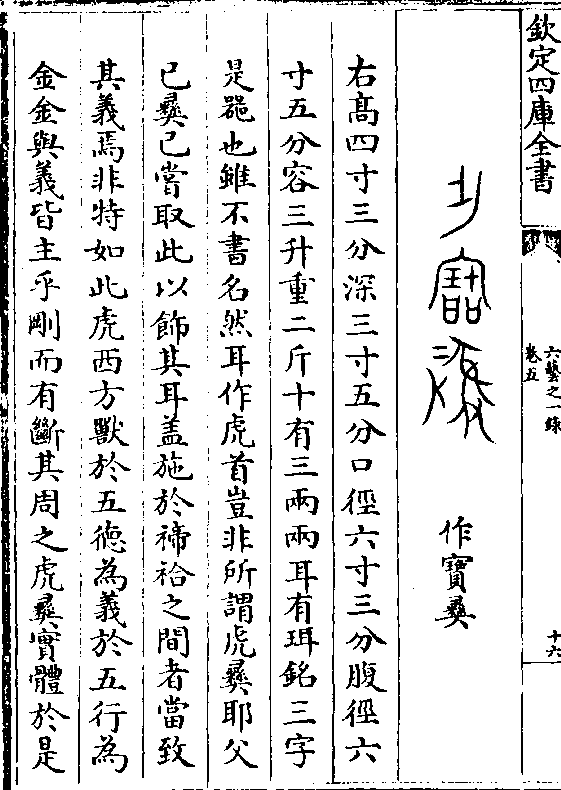 欽定四庫全書
六藝之一錄
卷五
十六
作寶彞
右高四寸三分深三寸五分口徑六寸三分腹徑六
寸五分容三升重二斤十有三兩兩耳有珥銘三字
是噐也雖不書名然耳作虎首豈非所謂虎彞耶父
已彞已嘗取此以飾其耳盖施於禘祫之間者當致
其義焉非特如此虎西方獸於五德為義於五行為
金金與義皆主乎剛而有斷其周之虎彞實體於是